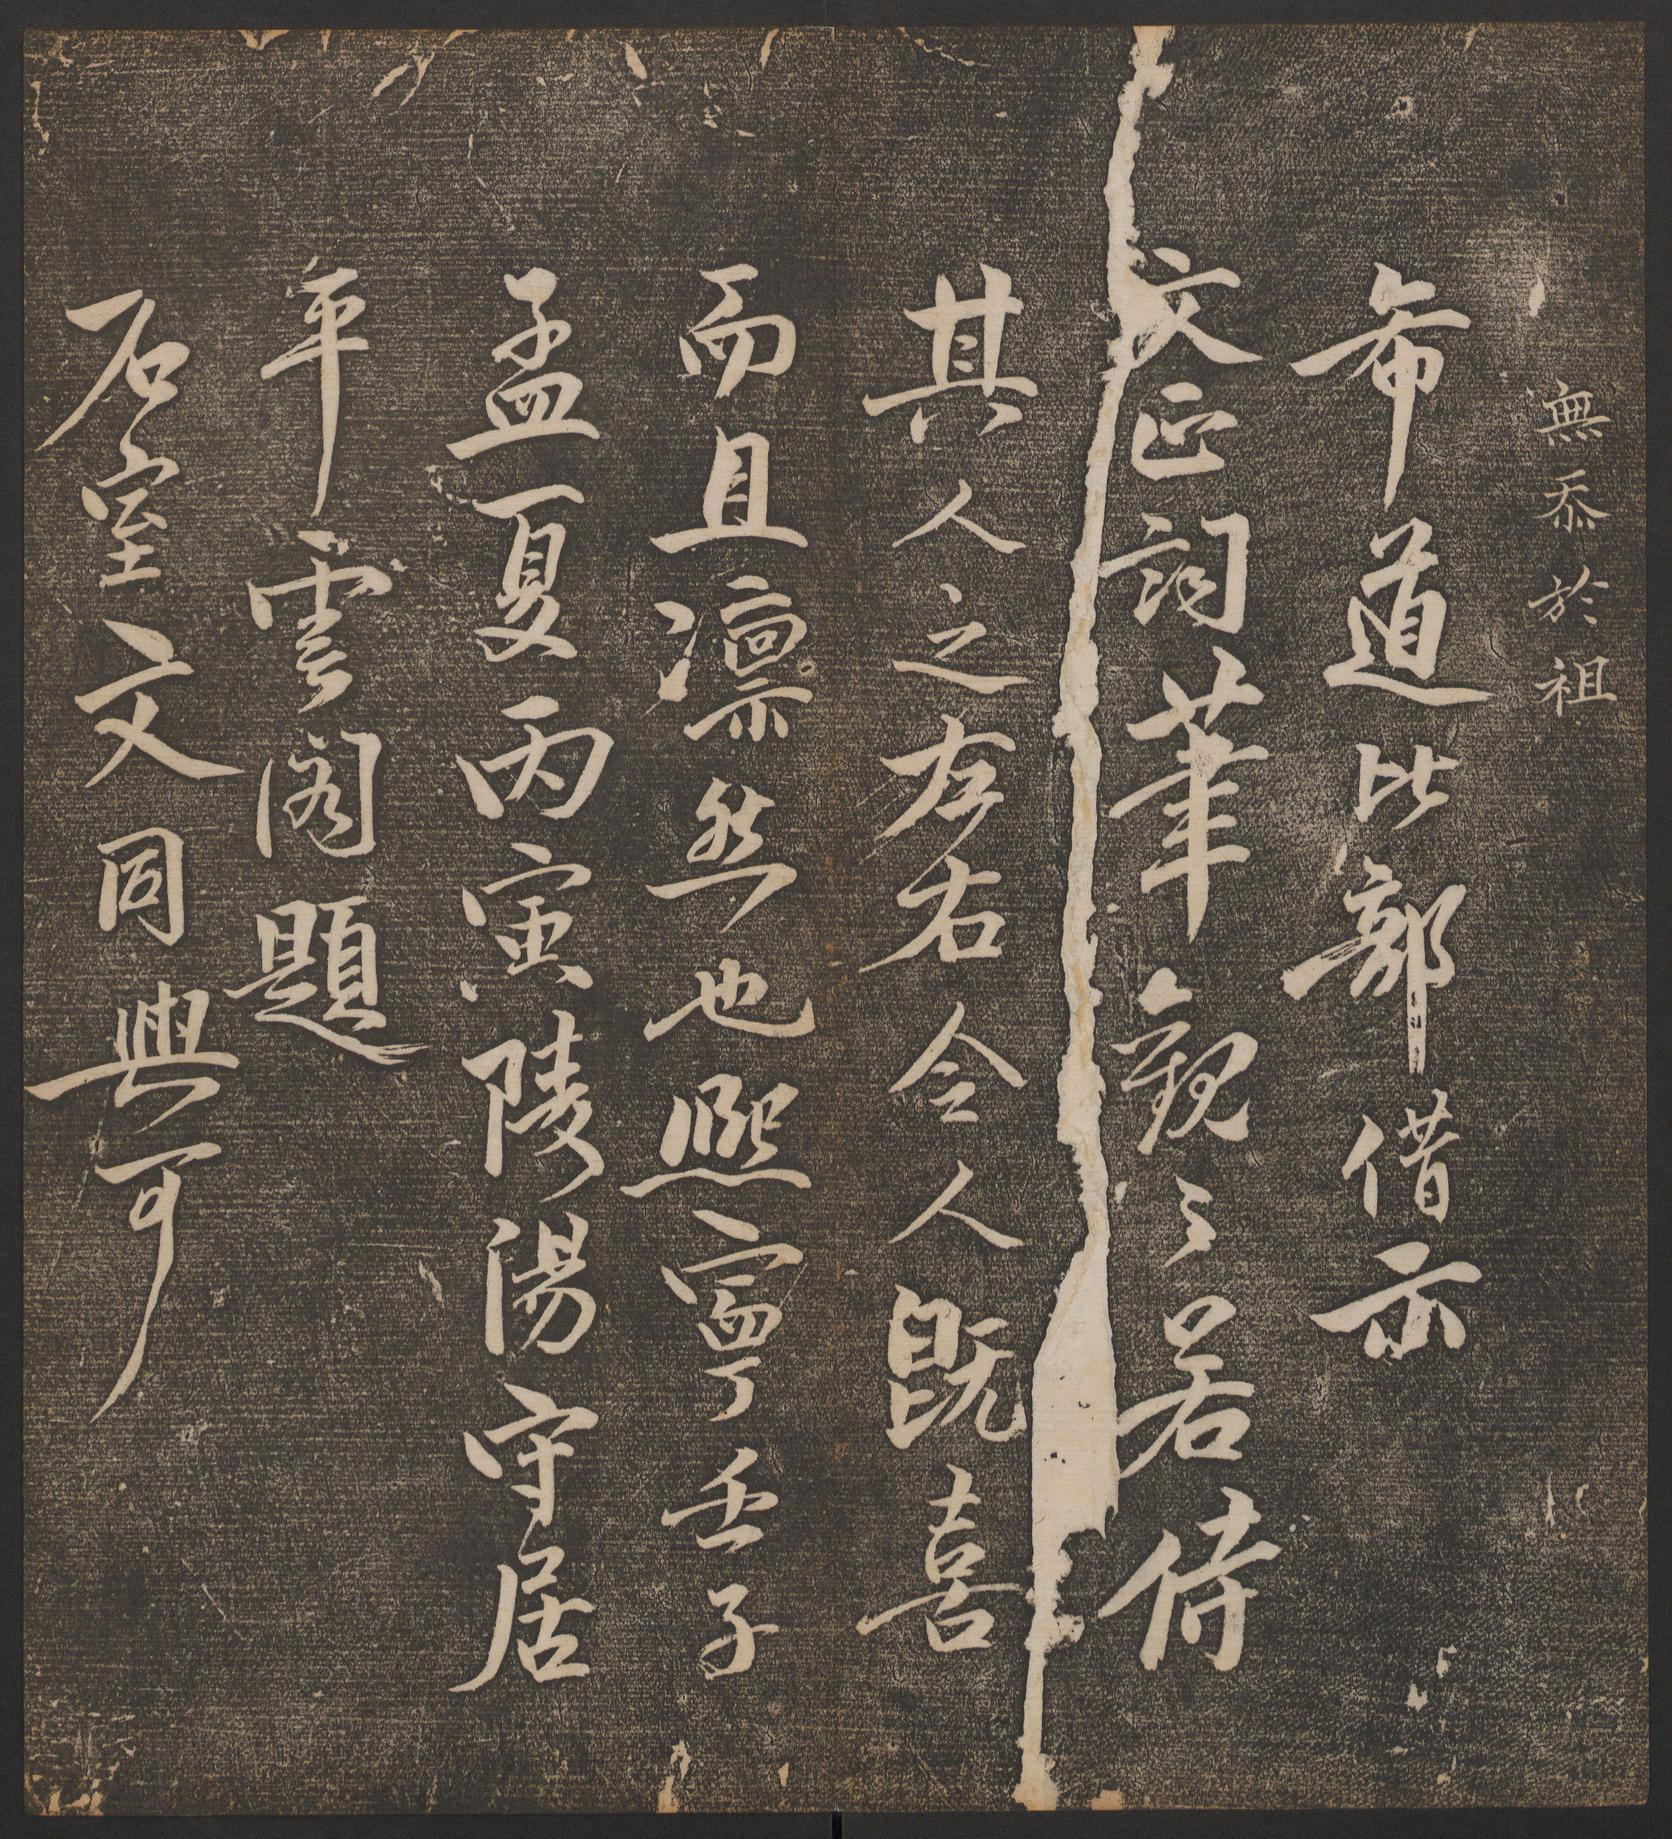 無忝於祖
希道比部借示
文正詞筆觀之若侍
其人之左右令人既喜
而且凛然也熙寧壬子
孟夏丙寅陵陽守居
平雲閣題
石室文同與可